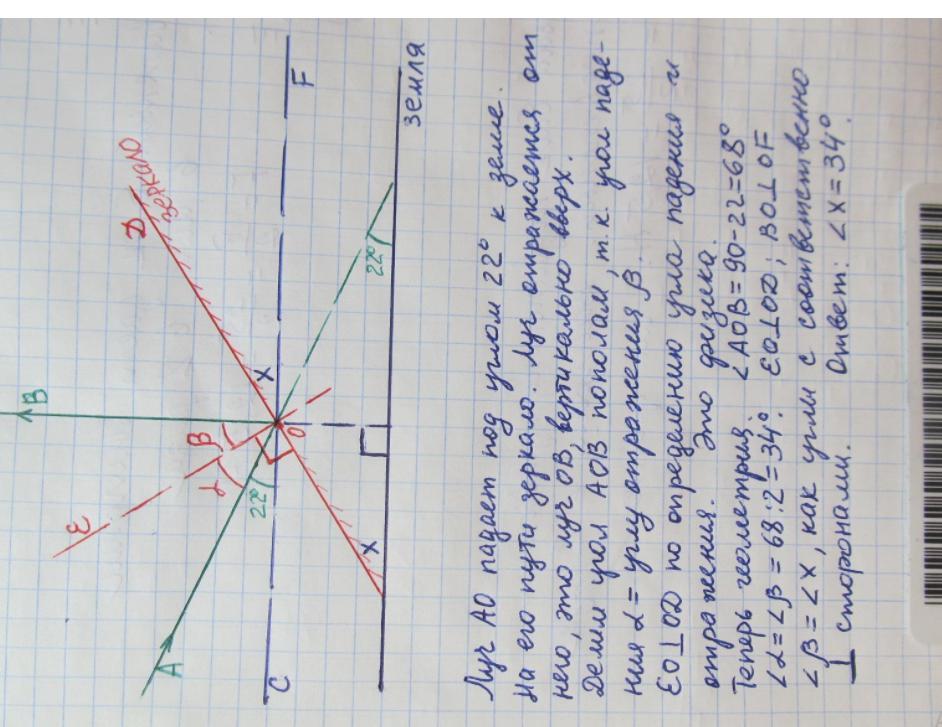 A
B
ε
Д
зеркало
α
β
22°
O
X
C
F
X
22°
земля
Луч АО падает под углом 22° к земле.
На его пути зеркало. Луч отражается от
него, это луч ОВ, вертикально вверх.
Делим угол АОВ пополам, т.к. угол паде-
ния α = углу отражения β.
ЕО⊥ОД по определению угла падения и
отражения. Это физика.
Теперь геометрия. ∠AOB=90-22=68°
∠α=∠β=68:2=34°. EO⊥OD; BO⊥OF
∠β=∠x, как углы с соответственно
⊥ сторонами. Ответ: ∠x=34°.